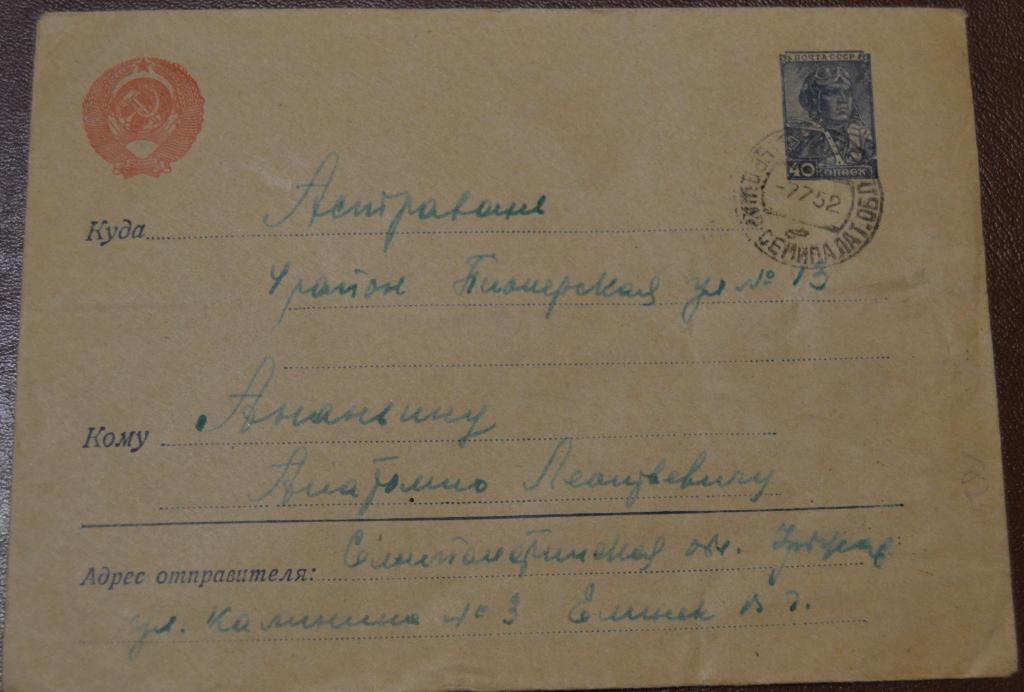 ПОЧТА СССР
40 КОПЕЕК
-7752
СЕМИПАЛАТ.ОБЛ
Куда Астрахань
4 район Пионерская ул № 13
Кому Ананьину
Анатолию Леонтьевичу
Адрес отправителя: Семипалатинская обл.
ул. Калинина № 3